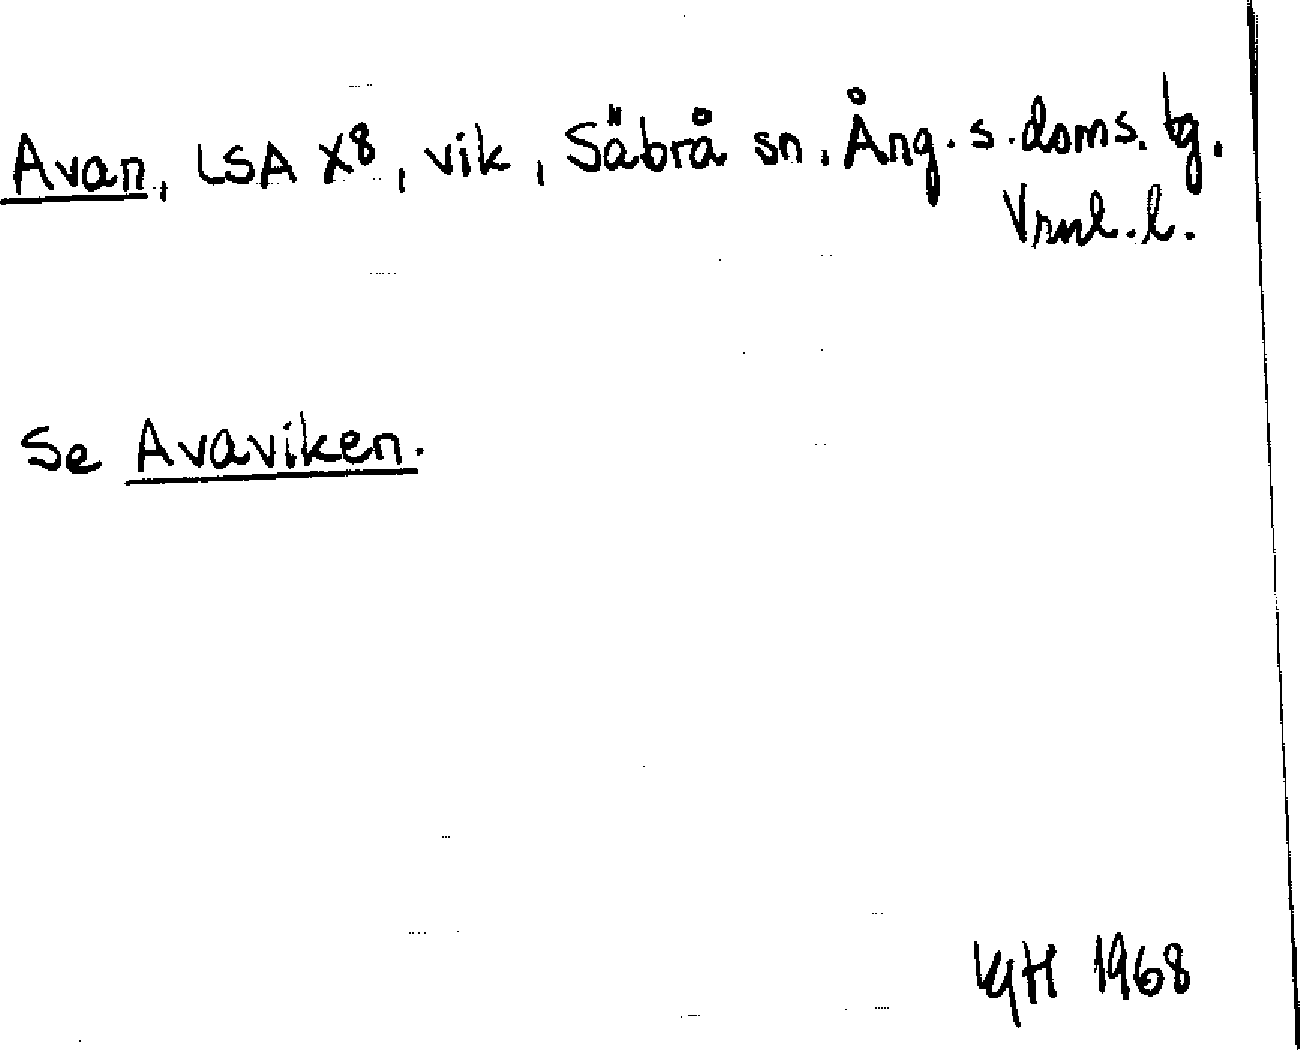 Avan, LSA X8, vik, Säbrå sn. Ång. s. doms. tg.
Vrnl. l.
Se Avaviken.
1968